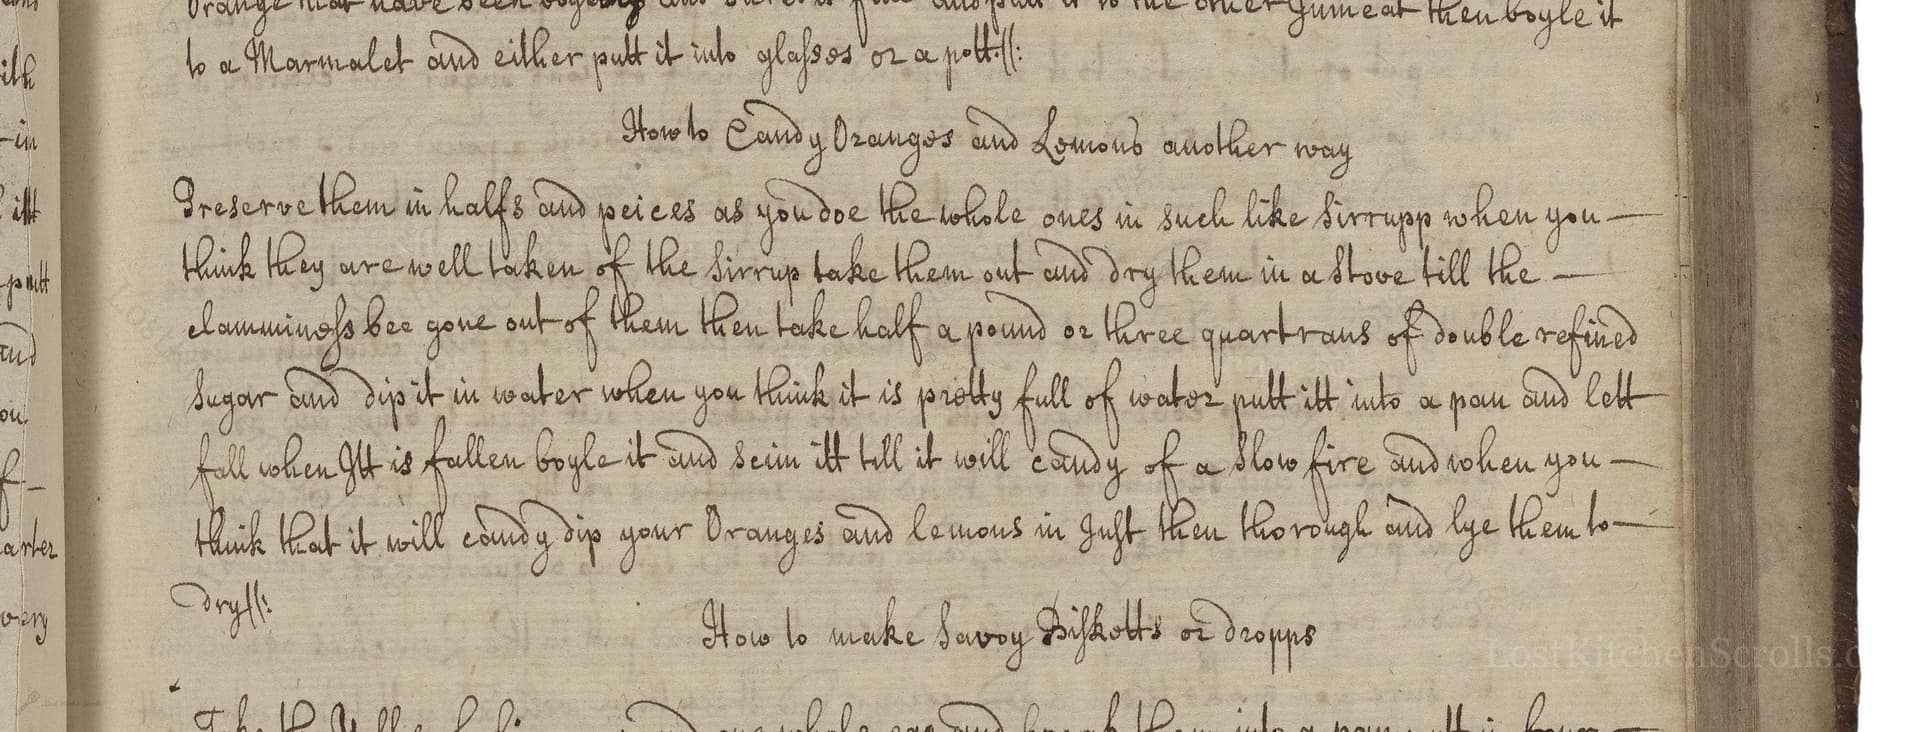 Orange that have been boyled and
then boyle it
to a Marmalet and either putt it into glasses or a pott:
How to Candy Oranges and Lemons another way
Preserve them in halfs and peices as you doe the whole ones in such like Sirrupp when you
think they are well taken of the Sirrup take them out and dry them in a Stove till the
clamminess bee gone out of them then take half a pound or three quartrans of double refined
Sugar and dip it in water when you think it is pretty full of water putt itt into a pan and lett
fall when Itt is fallen boyle it and scim itt till it will candy of a Slow fire and when you
think that it will candy dip your Oranges and lemons in Just then thorough and lye them to
dry:
How to make Savoy Biskotts or dropps
Take the
whole egg and break them into a pan
LostKitchenScrolls.c
ith
in
itt
putt
and
ou
f
arter
very